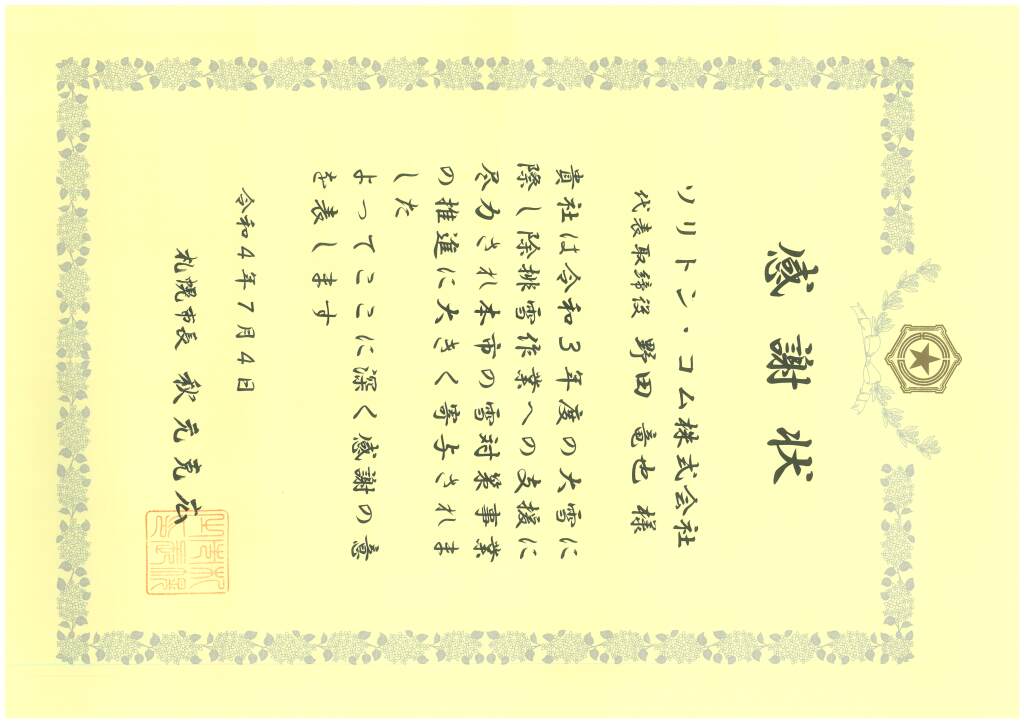 感謝状
ソリトン・コム株式会社
代表取締役 野田 竜也 様
貴社は令和3年度の大雪に
際し除排雪作業への支援に
尽力され本市の雪対策事業
の推進に大きく寄与されま
した
よってここに深く感謝の意
を表します
令和4年7月4日
札幌市長 秋元克広